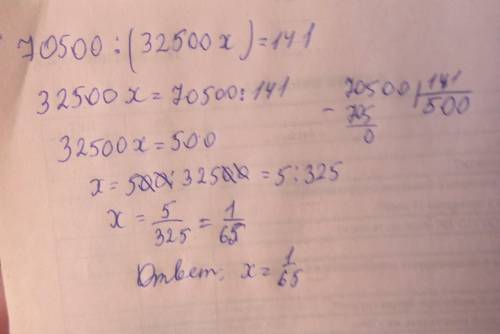 70500:(32500x)=141
32500x=70500:141
32500x=500
x=500:32500=5:325
x=5/325=1/65
Ответ: x=1/65
- 70500 | 141
705 500
0